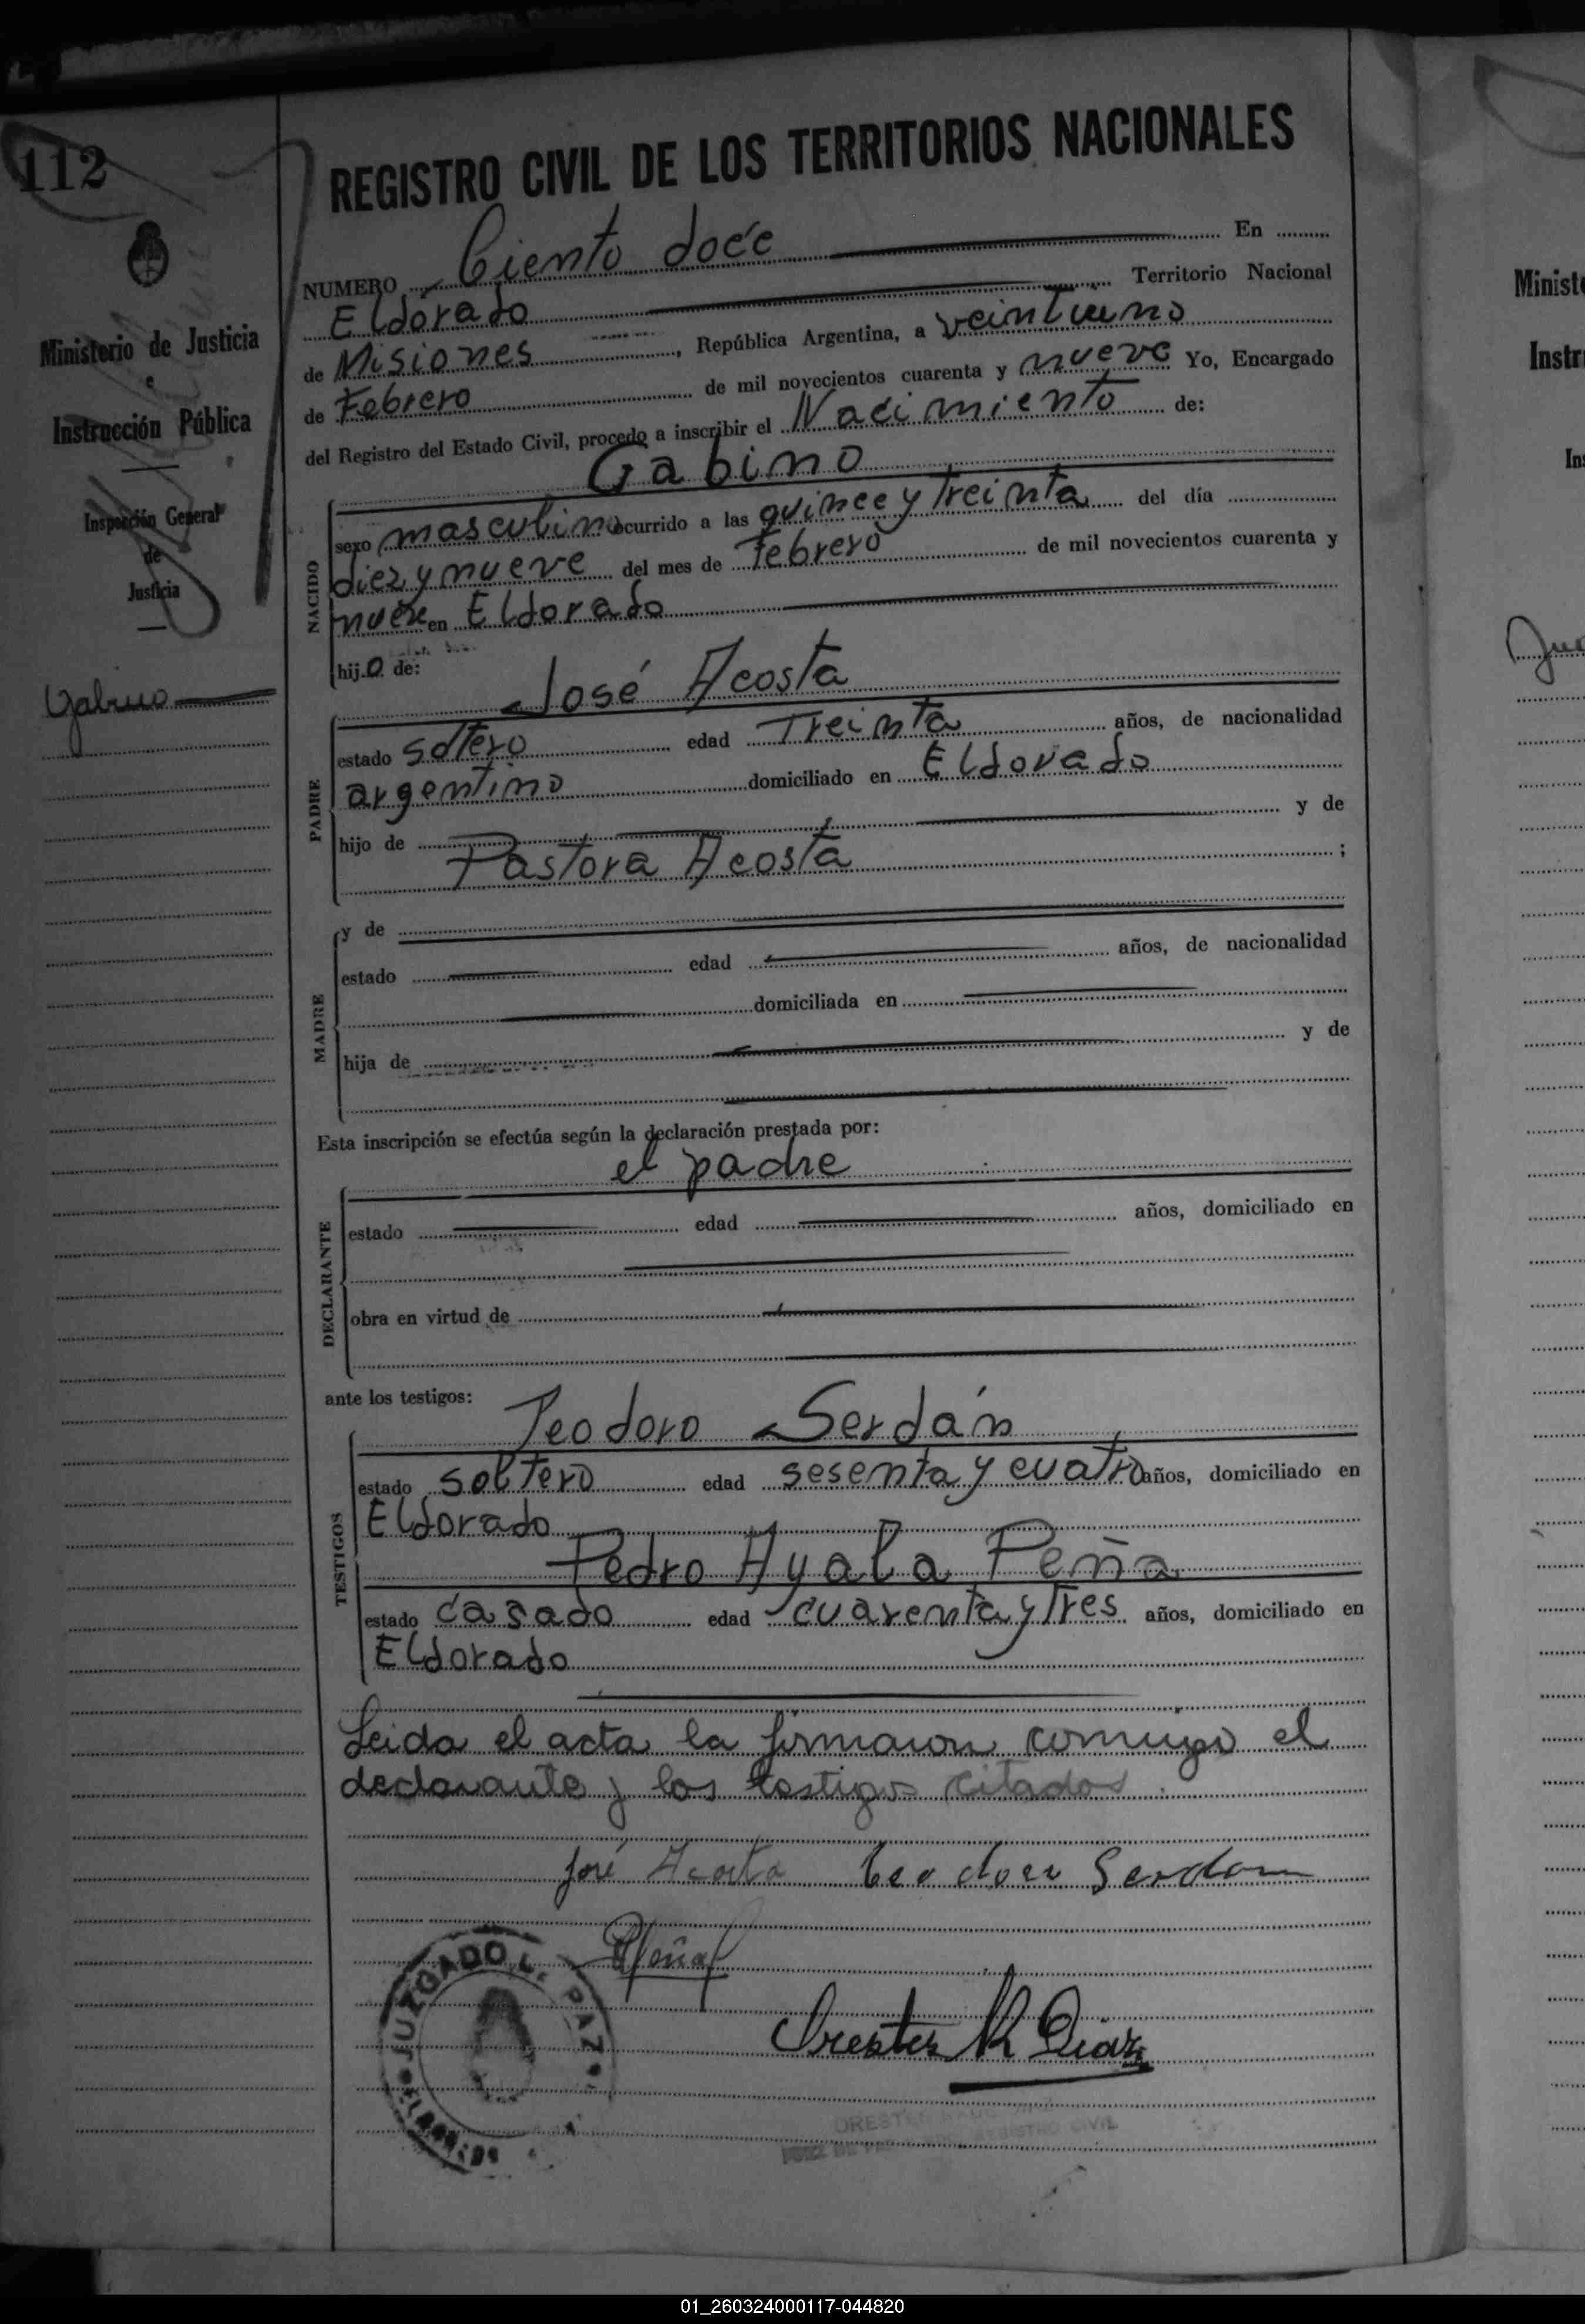 112
REGISTRO CIVIL DE LOS TERRITORIOS NACIONALES
NUMERO Ciento doce En
Eldorado Territorio Nacional
de Misiones, República Argentina, a veintiuno
de Febrero de mil novecientos cuarenta y nueve Yo, Encargado
del Registro del Estado Civil, procedo a inscribir el Nacimiento de:
Gabino
sexo masculino ocurrido a las quince y treinta del día
diez y nueve del mes de Febrero de mil novecientos cuarenta y
nueve en Eldorado
hijo de:
NACIDO
José Acosta
estado soltero edad Treinta años, de nacionalidad
argentino domiciliado en Eldorado
hijo de y de
Pastora Acosta ;
PADRE
y de
estado edad años, de nacionalidad
domiciliada en
hija de y de
MADRE
Esta inscripción se efectúa según la declaración prestada por:
el padre
estado edad años, domiciliado en
obra en virtud de
DECLARANTE
ante los testigos:
Teodoro Serdán
estado soltero edad sesenta y cuatro años, domiciliado en
Eldorado
Pedro Ayala Peña
estado casado edad cuarenta y tres años, domiciliado en
Eldorado
TESTIGOS
Leida el acta la firmaron conmigo el
declarante y los testigos citados.
José Acosta Teodoro Serdan
Peña
Orestes R Diaz
JUZGADO PAZ
ELDORADO
REGISTRO CIVIL
Ministerio de Justicia
e
Instrucción Pública
Inspección General
de
Justicia
Gabino
Minist
Instr
In
01_260324000117-044820